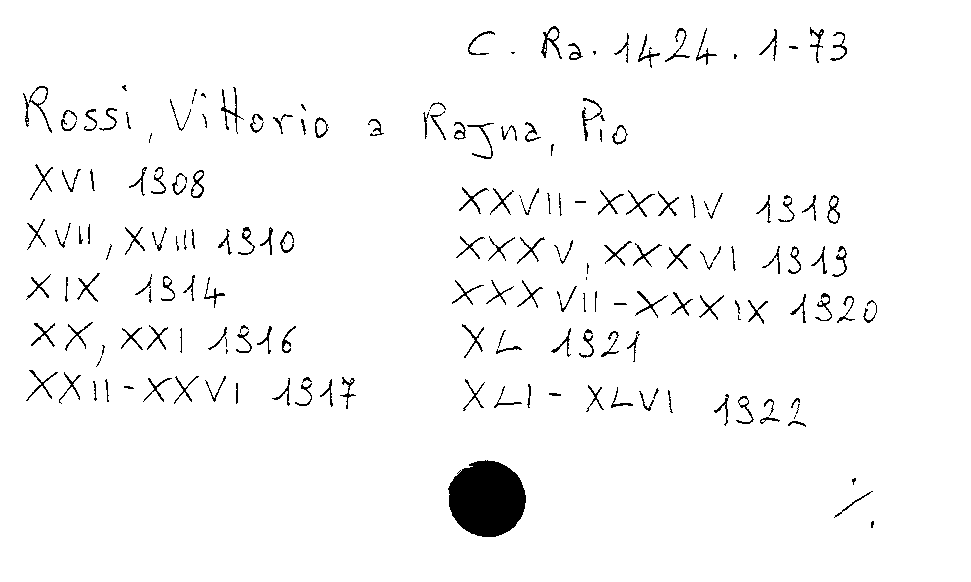 C. Ra. 1424. 1-73
Rossi, Vittorio a Rajna, Pio
XVI 1908
XVII, XVIII 1910
XIX 1914
XX, XXI 1916
XXII-XXVI 1917
XXVII-XXXIV 1918
XXXV, XXXVI 1919
XXXVII-XXXIX 1920
XL 1921
XLI- XLVI 1922
./.